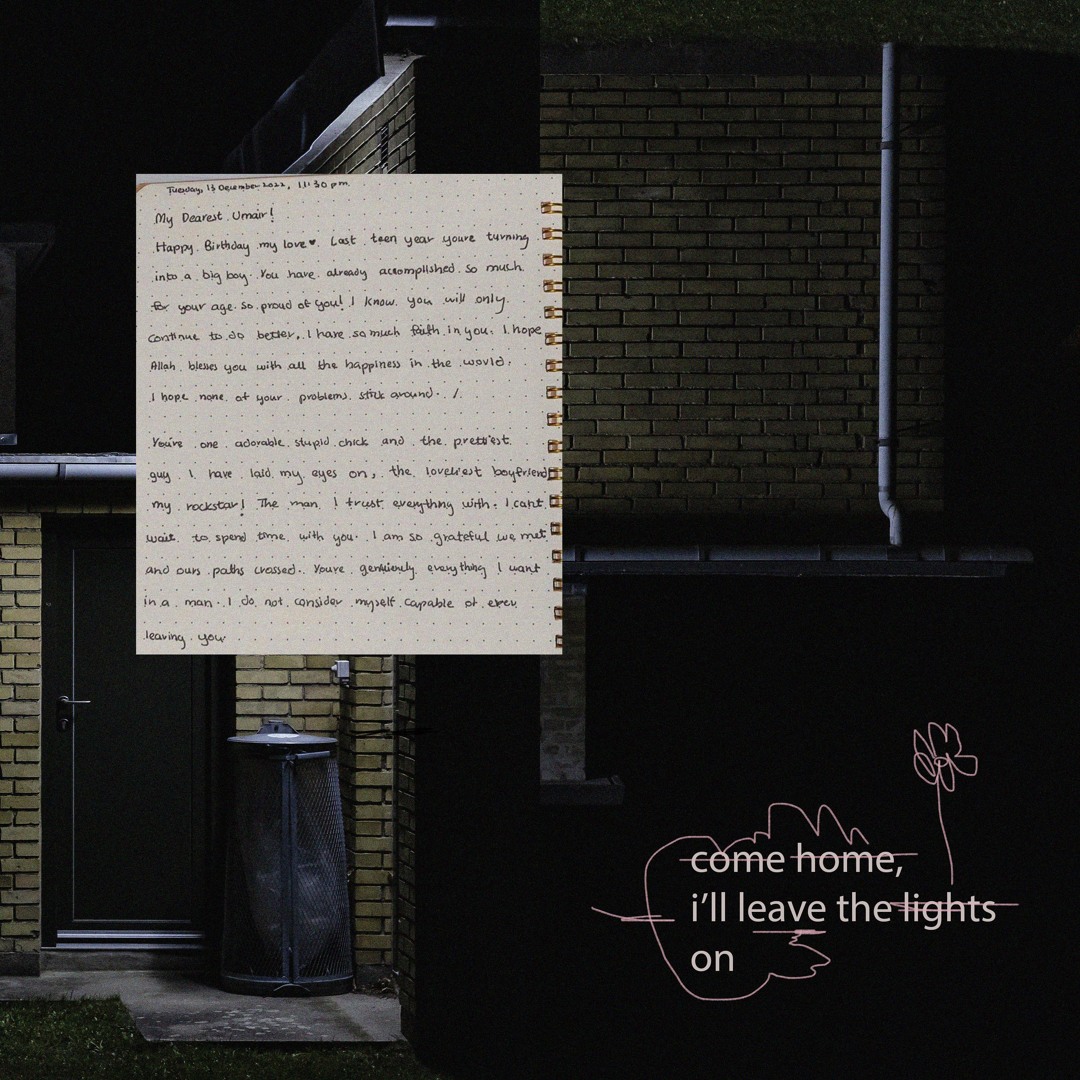 Tuesday, 13 December 2022, 11:30 pm
My Dearest Umair!
Happy Birthday my love♥. Last teen year youre turning
into a big boy. You have already accomplished so much
for your age. so proud of you! I know you will only
continue to do better, I have so much faith in you. I hope
Allah blesses you with all the happiness in the world.
I hope none of your problems stick around. /.
You're one adorable stupid chick and the prettiest
guy I have laid my eyes on, the loveliest boyfriend
my rockstar! The man I trust everything with. I cant
wait to spend time with you. I am so grateful we met
and ours paths crossed. Youre genuienly everything I want
in a man. I do not consider myself capable of ever
leaving you.
come home,
i'll leave the lights
on